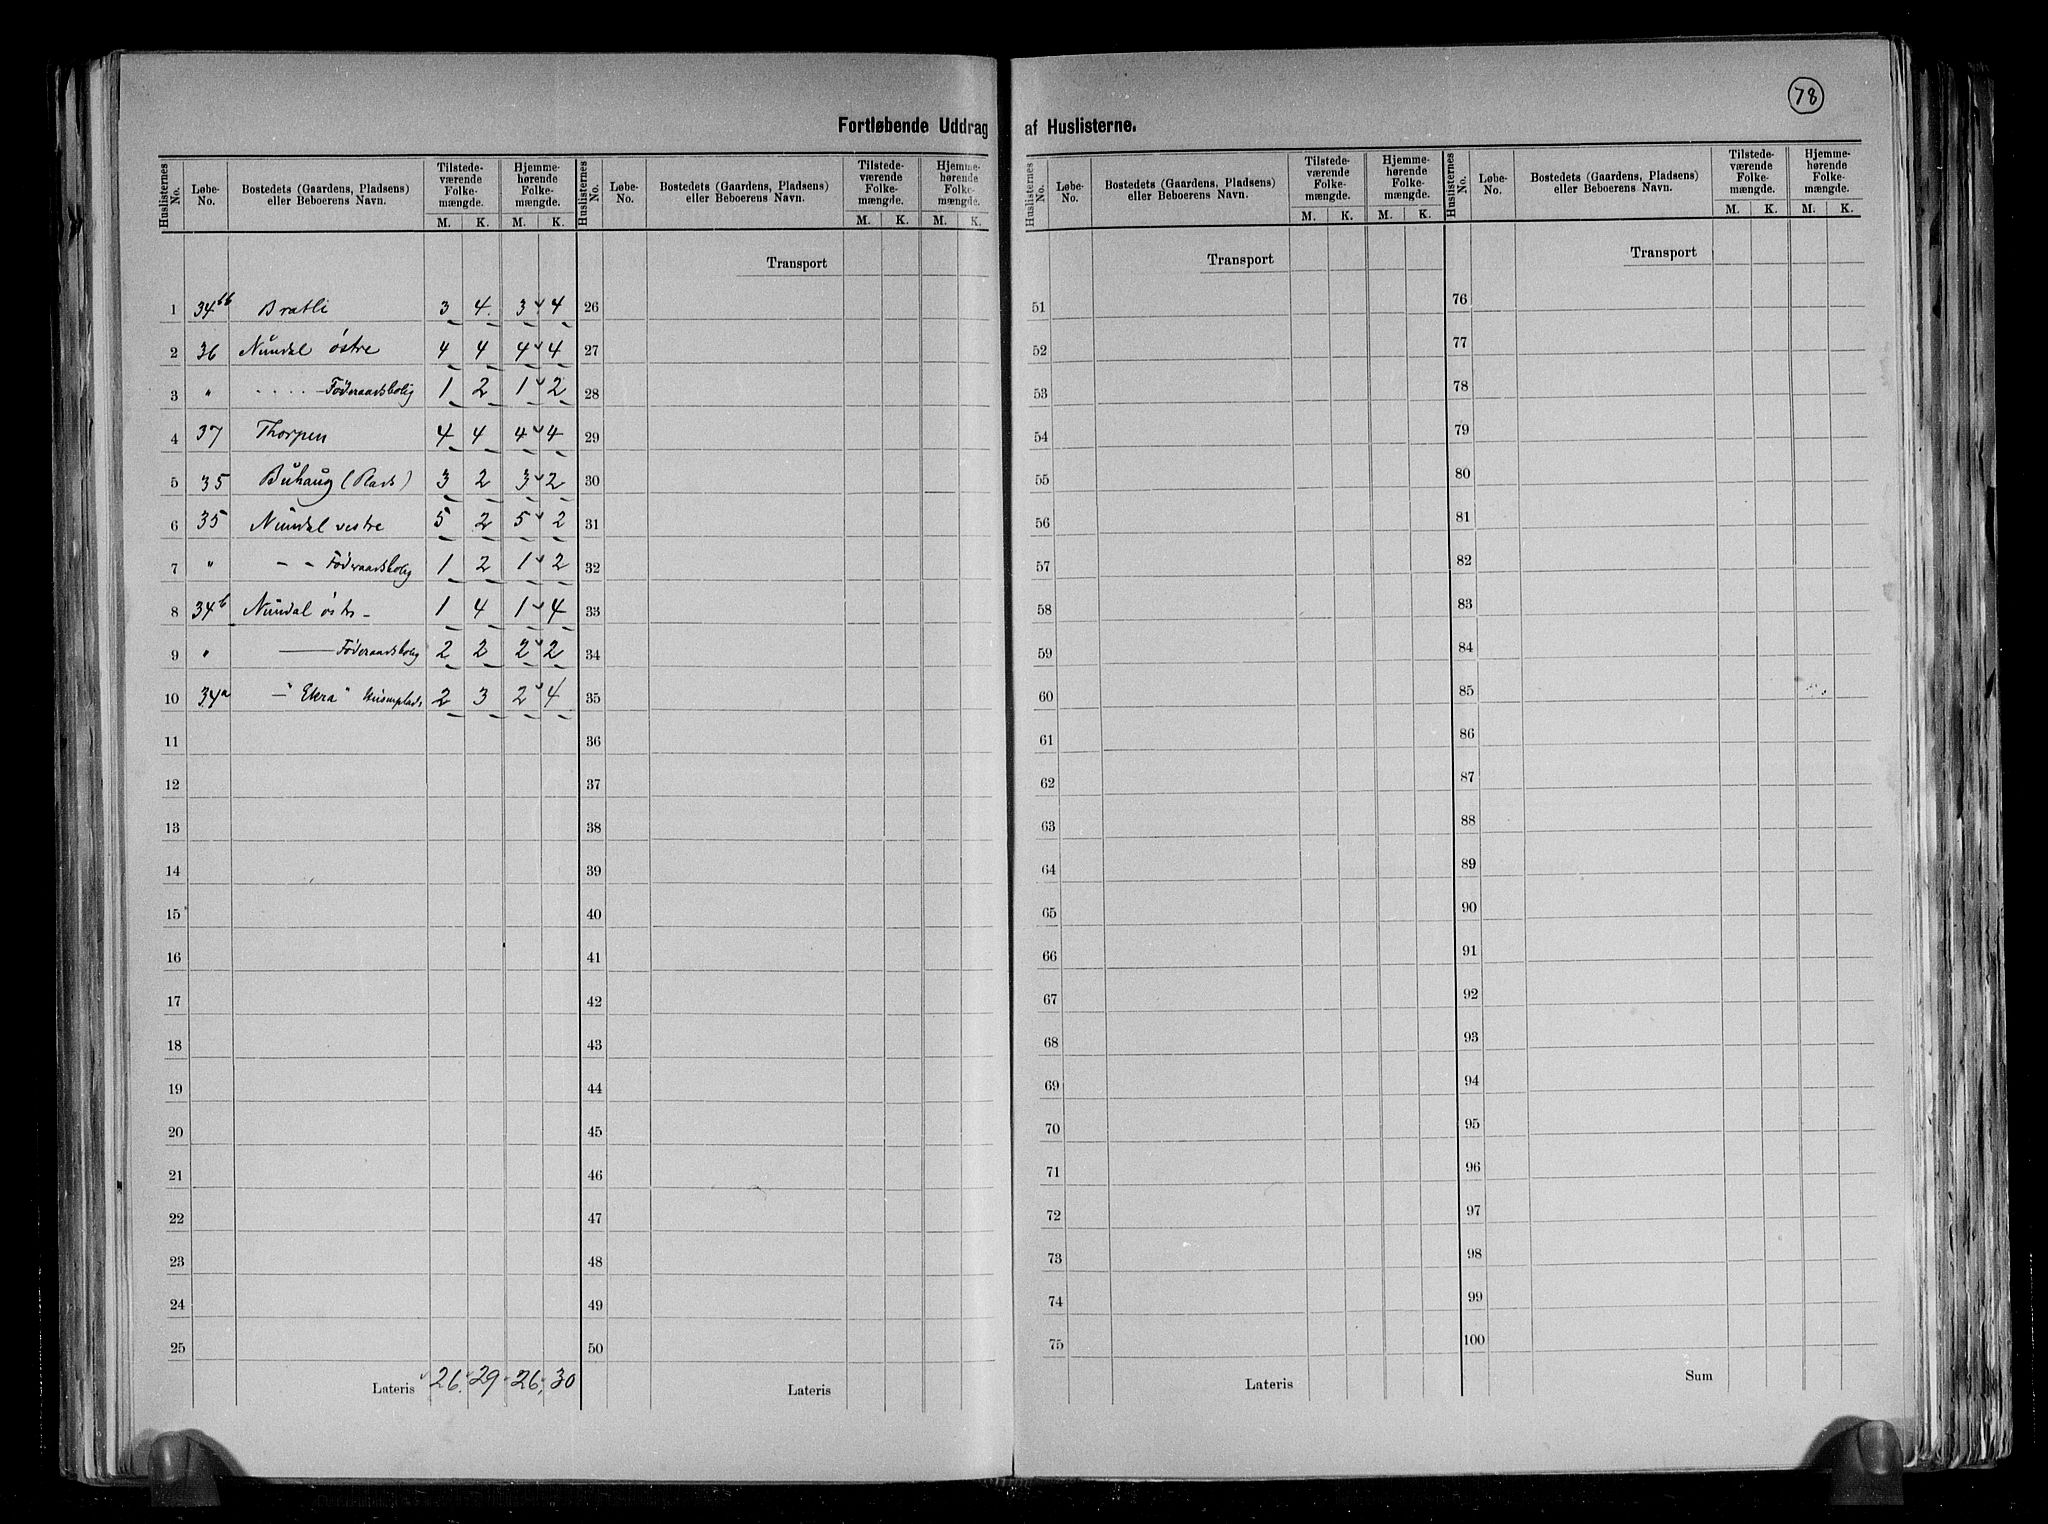 78
Fortløbende Uddrag af Huslisterne.
Huslisternes No. | Løbe-No. | Bostedets (Gaardens, Pladsens) eller Beboerens Navn. | Tilstedeværende Folkemængde. M. K. | Hjemmehørende Folkemængde. M. K.
1 34bb Bratli 3 4 3 4
2 36 Nundal østre 4 4 4 4
3 " - - - - - Føderaadsbolig 1 2 1 2
4 37 Thorpen 4 4 4 4
5 35 Buhaug (Plads) 3 2 3 2
6 35 Nundal vestre 5 2 5 2
7 " - - Føderaadsbolig 1 2 1 2
8 34b Nundal østr - 1 4 1 4
9 " - Føderaadsbolig 2 2 2 2
10 34a - "Ekra" Husmplads 2 3 2 4
11
12
13
14
15
16
17
18
19
20
21
22
23
24
25
Lateris 26. 29 26. 30
Huslisternes No. | Løbe-No. | Bostedets (Gaardens, Pladsens) eller Beboerens Navn. | Tilstedeværende Folkemængde. M. K. | Hjemmehørende Folkemængde. M. K.
Transport
26
27
28
29
30
31
32
33
34
35
36
37
38
39
40
41
42
43
44
45
46
47
48
49
50
Lateris
Huslisternes No. | Løbe-No. | Bostedets (Gaardens, Pladsens) eller Beboerens Navn. | Tilstedeværende Folkemængde. M. K. | Hjemmehørende Folkemængde. M. K.
Transport
51
52
53
54
55
56
57
58
59
60
61
62
63
64
65
66
67
68
69
70
71
72
73
74
75
Lateris
Huslisternes No. | Løbe-No. | Bostedets (Gaardens, Pladsens) eller Beboerens Navn. | Tilstedeværende Folkemængde. M. K. | Hjemmehørende Folkemængde. M. K.
Transport
76
77
78
79
80
81
82
83
84
85
86
87
88
89
90
91
92
93
94
95
96
97
98
99
100
Sum